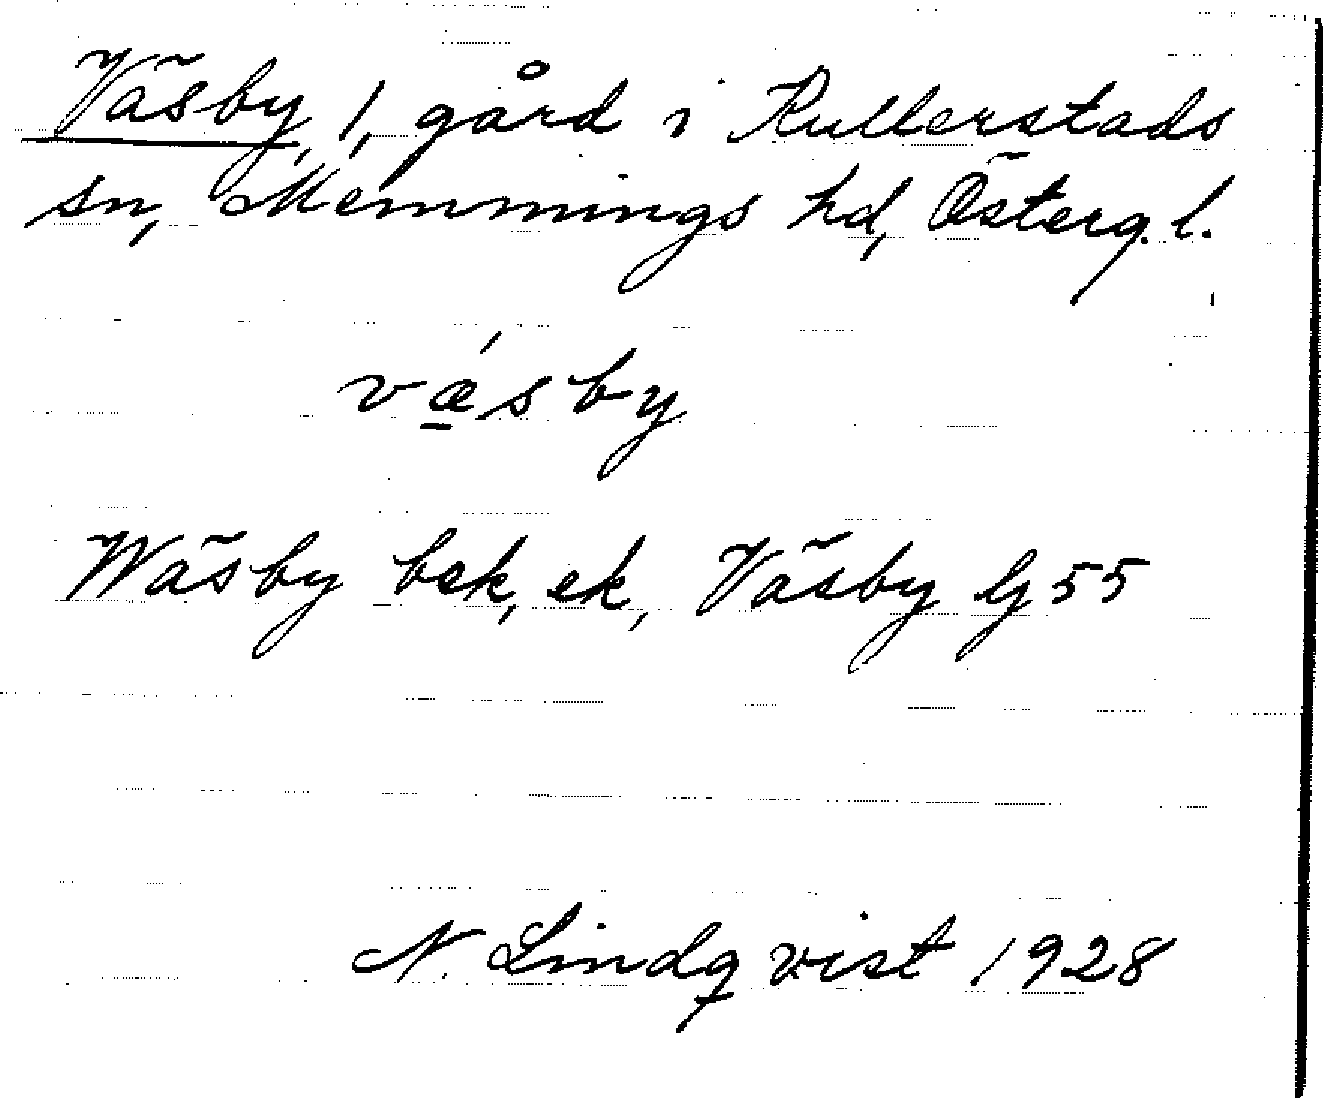 Väsby, 1, gård i Kullerstads
sn, Memmings hd, Österg. l.
vǽ̱sby
Wäsby bek, ek, Väsby Gj 55
N. Lindqvist 1928